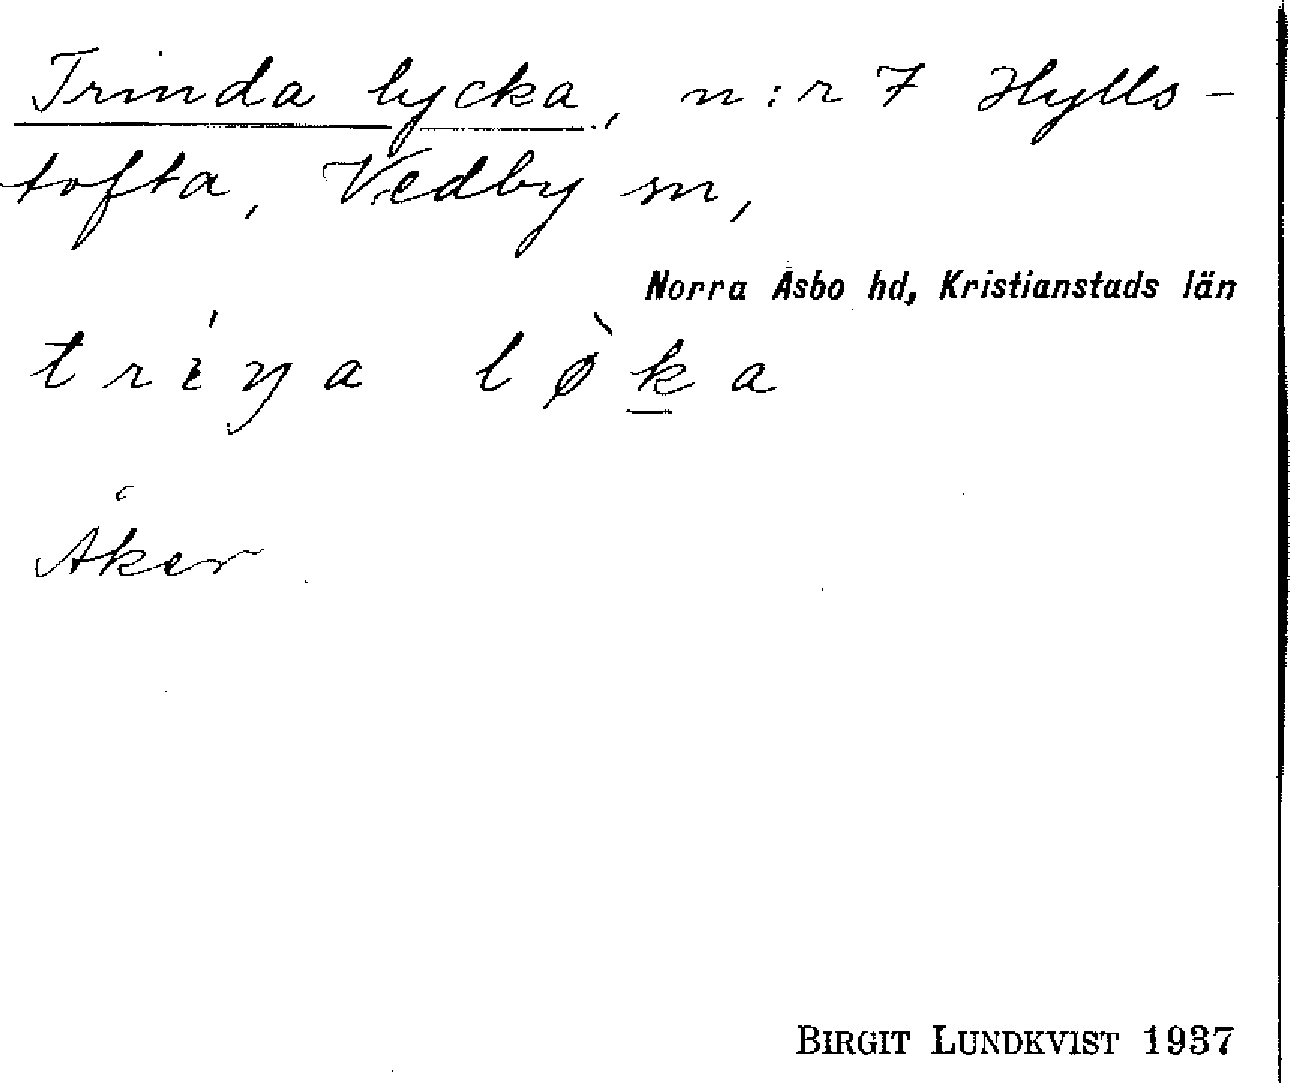 Trinda lycka, n:r 7 Hylls-
tofta, Vedby sn,
Norra Åsbo hd, Kristianstads län
tríŋa lø̀k̲a
Åker
BIRGIT LUNDKVIST 1937